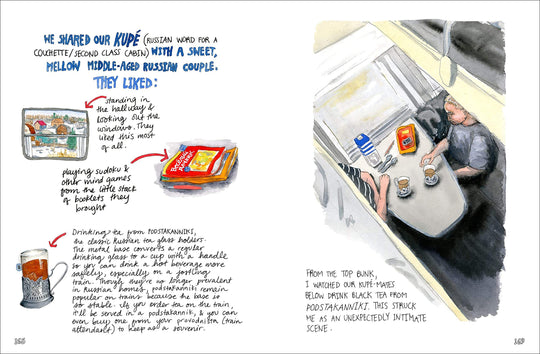 WE SHARED OUR KUPÉ (RUSSIAN WORD FOR A
COUCHETTE/SECOND CLASS CABIN) WITH A SWEET,
MELLOW MIDDLE-AGED RUSSIAN COUPLE.
THEY LIKED:
standing in
the hallway &
looking out the
windows. They
liked this most
of all.
playing sudoku &
other mind games
from the little stack
of booklets they
brought
Drinking tea from PODSTAKANNIKI,
the classic Russian tea glass holders.
The metal base converts a regular
drinking glass to a cup with a handle
so you can drink a hot beverage more
safely, especially on a jostling
train. Though they're no longer prevalent
in Russian homes, podstakanniki remain
popular on trains because the base is
so stable. If you order tea on the train,
it'll be served in a podstakannik, & you can
even buy one from your provodnitsa (train
attendant) to keep as a souvenir.
168
FROM THE TOP BUNK,
I WATCHED OUR KUPÉ-MATES
BELOW DRINK BLACK TEA FROM
PODSTAKANNIKI. THIS STRUCK
ME AS AN UNEXPECTEDLY INTIMATE
SCENE.
169